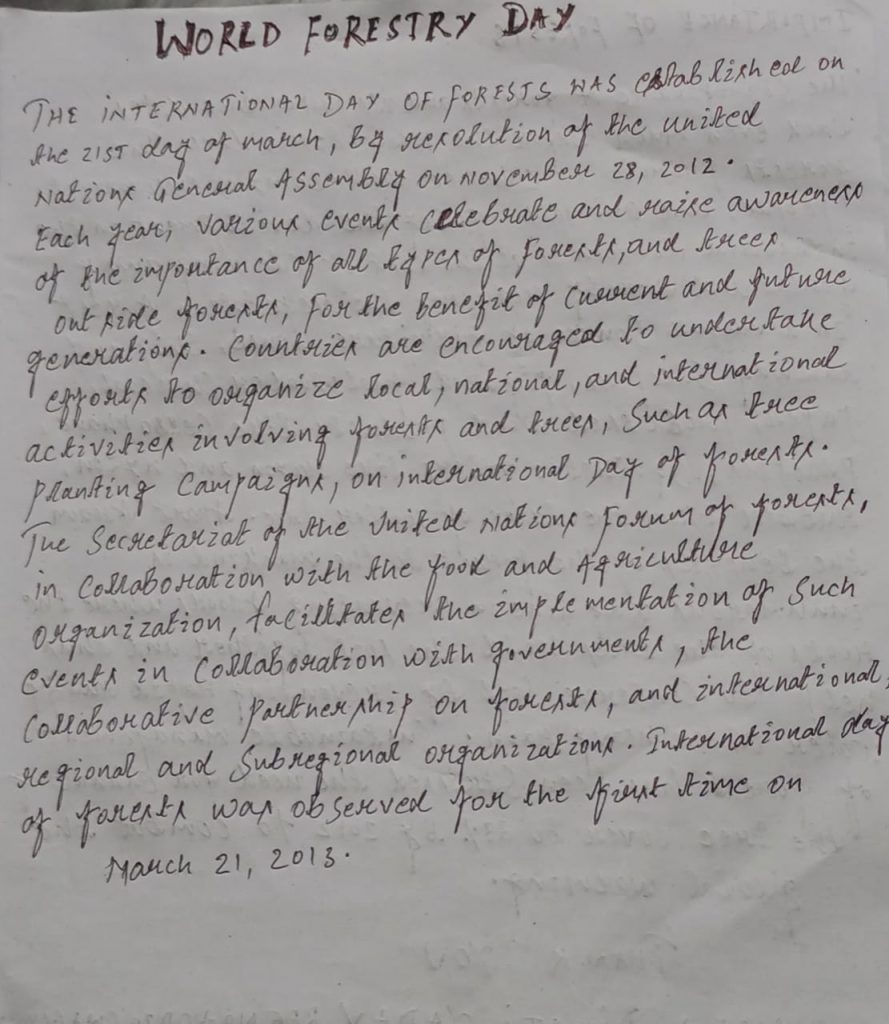 WORLD FORESTRY DAY
THE INTERNATIONAL DAY OF FORESTS WAS established on
the 21ST day of march, by resolution of the united
Nations General Assembly on November 28, 2012.
Each year, various events celebrate and raise awareness
of the importance of all types of forests, and trees
outside forests, for the benefit of current and future
generations. Countries are encouraged to undertake
efforts to organize local, national, and international
activities involving forests and trees, such as tree
planting campaigns, on international Day of forests.
The Secretariat of the United Nations Forum of forests,
in collaboration with the food and Agriculture
organization, facilitates the implementation of such
events in collaboration with governments, the
collaborative partnership on forests, and international,
regional and subregional organizations. International day
of forests was observed for the first time on
March 21, 2013.